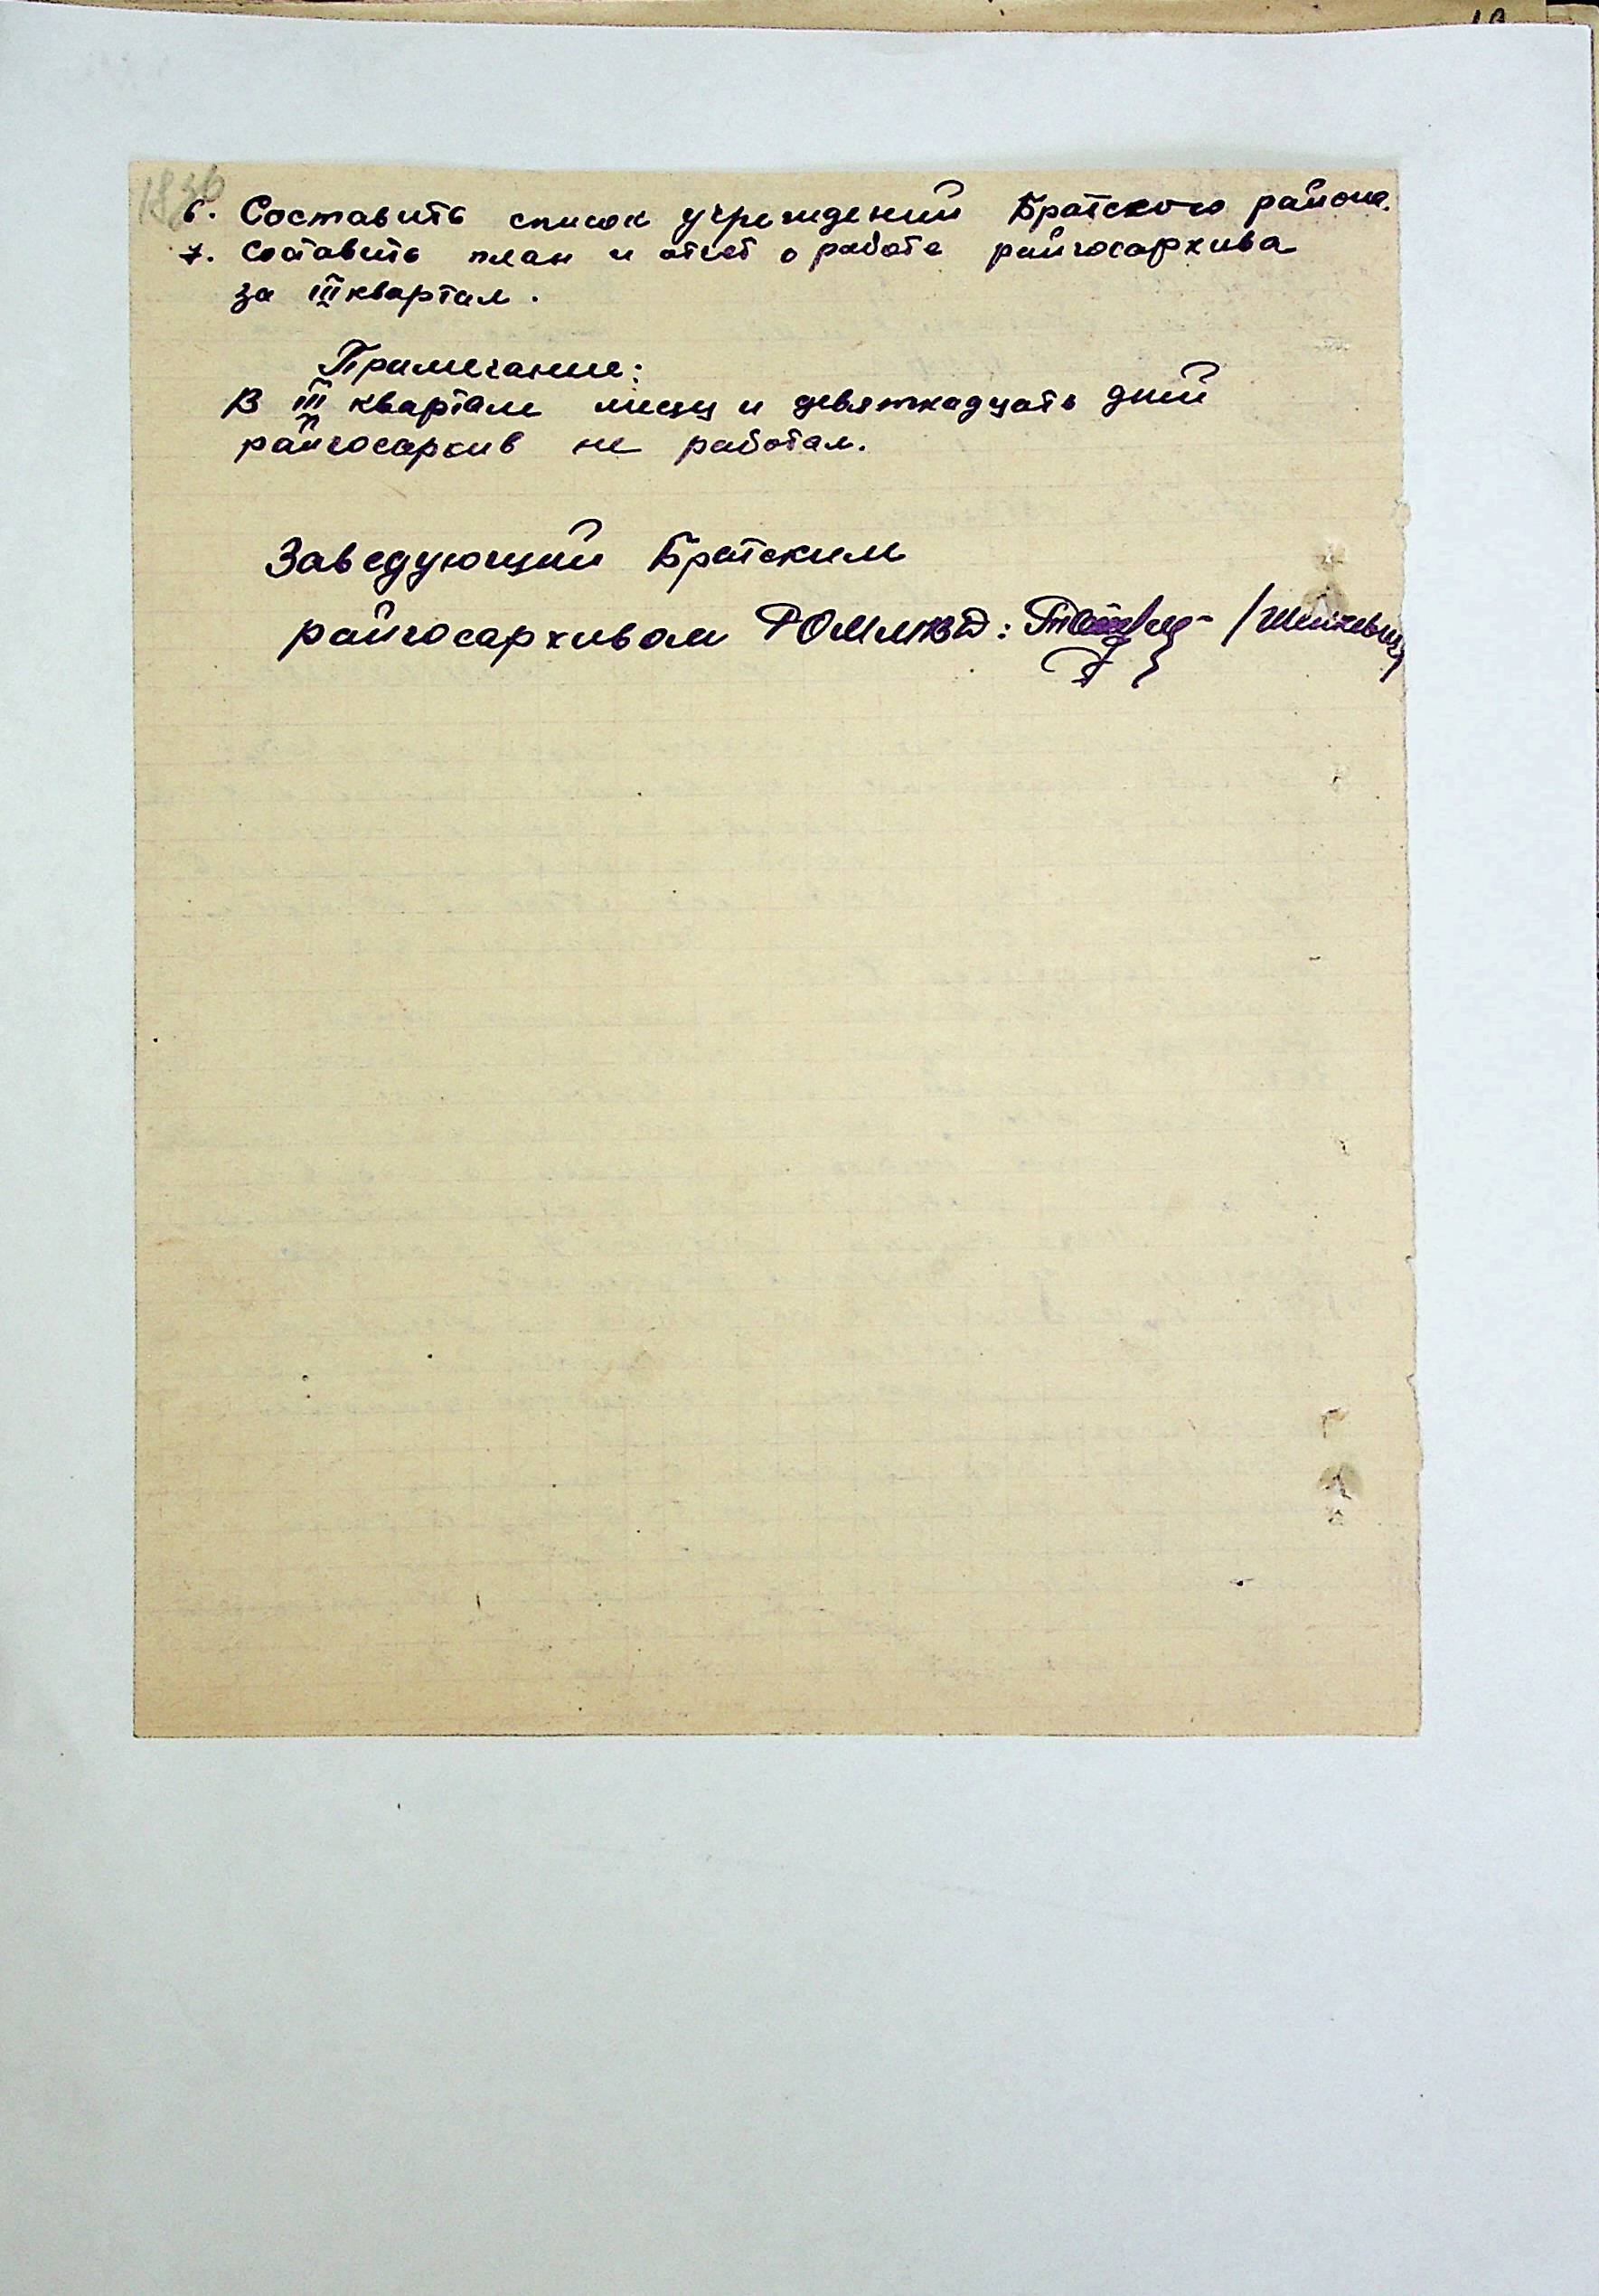 6. Составить список учреждений Братского района.
7. Составить план и отчет о работе райгосархива
за III квартал.
Примечание:
В III квартале месяц и девятнадцать дней
райгосархив не работал.
Заведующий Братским
райгосархивом РОМНКВД: